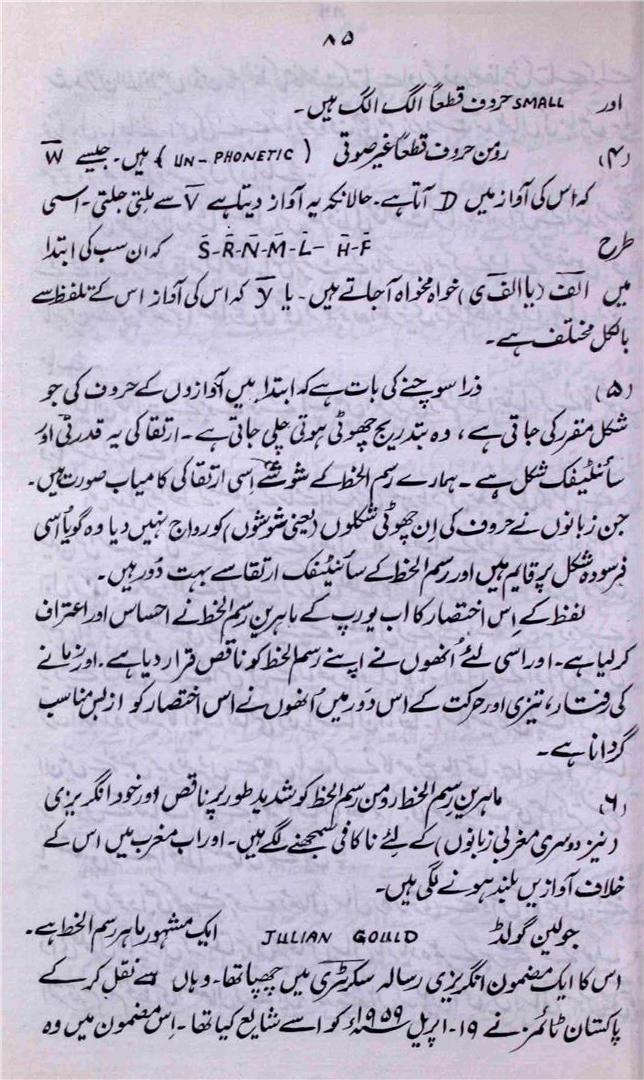 ۸۵
اور SMALL حروف قطعاً الگ الگ ہیں۔
(۴) رومن حروف قطعاً غیر صوتی (UN-PHONETIC) ہیں۔ جیسے W
کہ اس کی آواز میں D آتا ہے۔ حالانکہ یہ آواز دیتا ہے V سے ملتی جلتی۔ اسی
طرح S-R-N-M-L- H-F کہ ان سب کی ابتدا
میں الف (یا الف ی) خواہ مخواہ آجاتے ہیں۔ یا Y کہ اس کی آواز اس کے تلفظ سے
بالکل مختلف ہے۔
(۵) ذرا سوچنے کی بات ہے کہ ابتدا میں آوازوں کے حروف کی جو
شکل مقرر کی جاتی ہے، وہ بتدریج چھوٹی ہوتی چلی جاتی ہے۔ ارتقا کی یہ قدرتی اور
سائنٹیفک شکل ہے۔ ہمارے رسم الخط کے شوشے اِسی ارتقا کی کامیاب صورت ہیں۔
جن زبانوں نے حروف کی اِن چھوٹی شکلوں (یعنی شوشوں) کو رواج نہیں دیا وہ گویا اُسی
فرسودہ شکل پر قایم ہیں اور رسم الخط کے سائنٹیفک ارتقا سے بہت دُور ہیں۔
لفظ کے اِس اختصار کا اب یورپ کے ماہرینِ رسم الخط نے احساس اور اعتراف
کر لیا ہے۔ اور اسی لئے اُنھوں نے اپنے رسم الخط کو ناقص قرار دیا ہے۔ اور زمانے
کی رفتار، تیزی اور حرکت کے اس دَور میں اُنھوں نے اس اختصار کو ازبس مناسب
گردانا ہے۔
(۶) ماہرینِ رسم الخط رومن رسم الخط کو شدید طور پر ناقص اور خود انگریزی
(نیز دوسری مغربی زبانوں) کے لئے ناکافی سمجھنے لگے ہیں۔ اور اب مغرب میں اس کے
خلاف آوازیں بلند ہونے لگی ہیں۔
جولین گولڈ JULIAN GOULD ایک مشہور ماہر رسم الخط ہے۔
اس کا ایک مضمون انگریزی رسالہ سکرٹری میں چھپا تھا۔ وہاں سے نقل کر کے
پاکستان ٹائمز نے ۱۹۔ اپریل ۱۹۵۹ء کو اسے شایع کیا تھا۔ اِس مضمون میں وہ